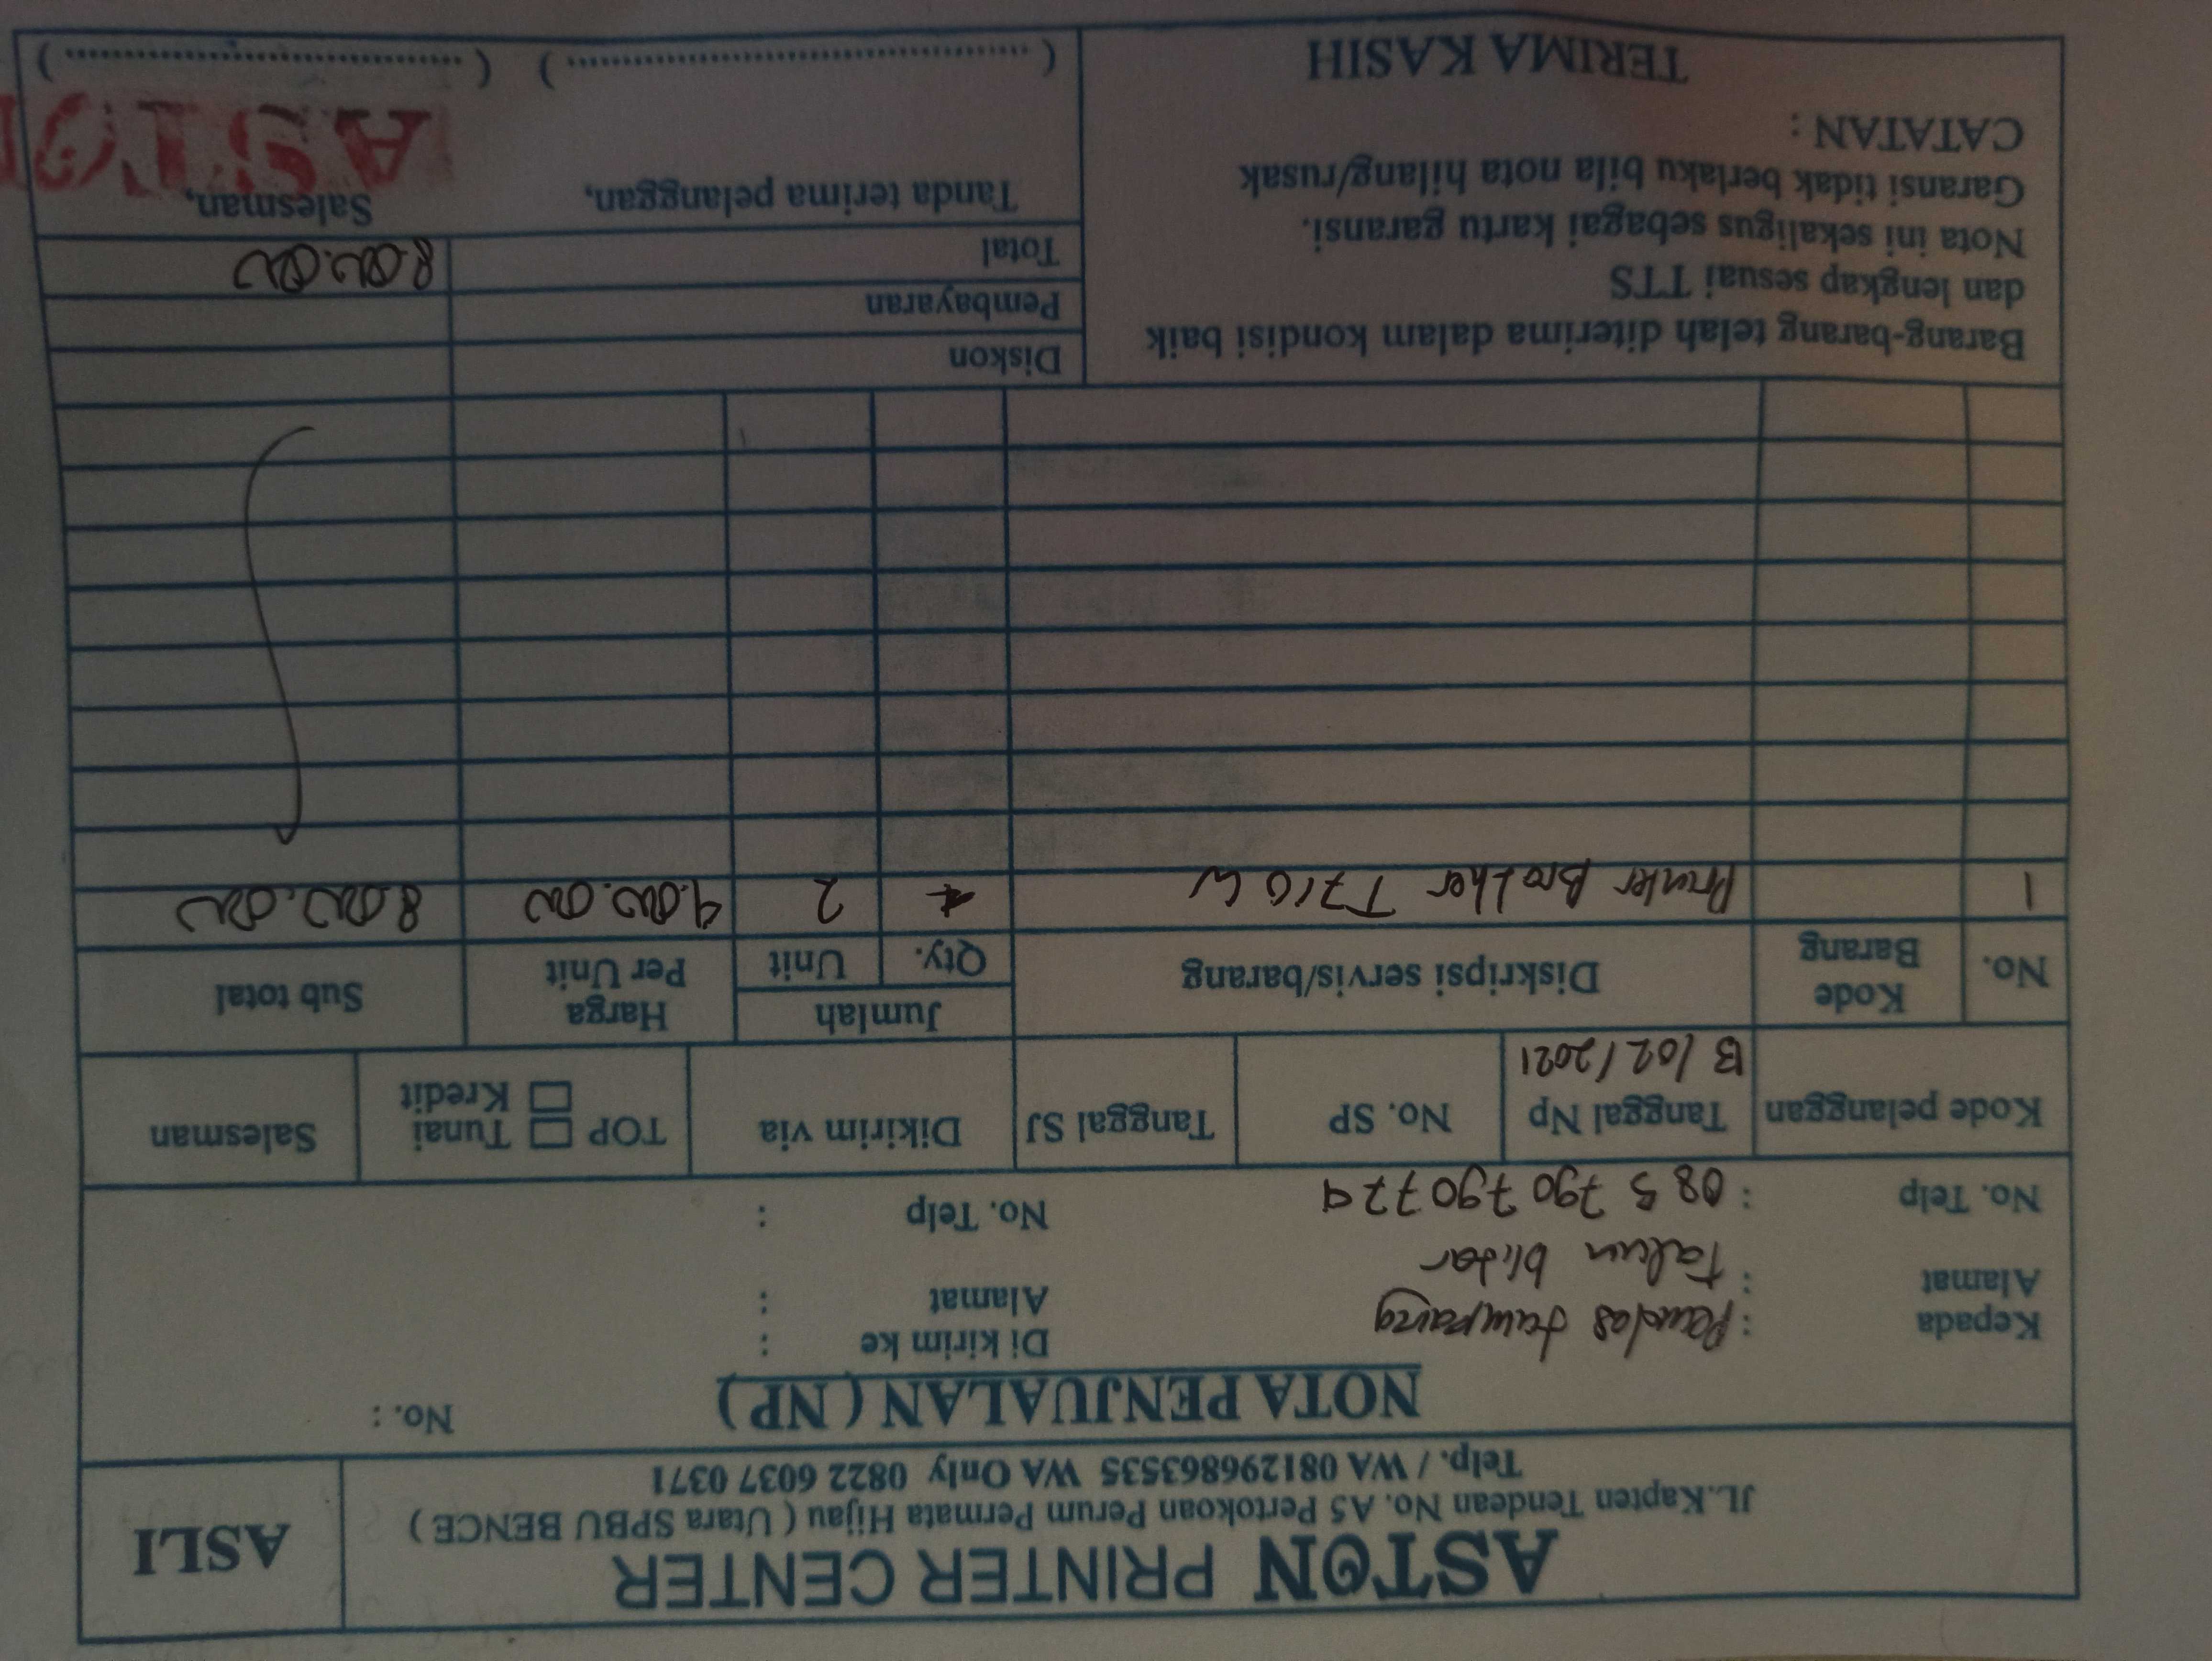 ASTON PRINTER CENTER
JL.Kapten Tendean No. A5 Pertokoan Perum Permata Hijau ( Utara SPBU BENCE )
Telp. / WA 081296863535 WA Only 0822 6037 0371
ASLI
NOTA PENJUALAN ( NP )
No. :
Kepada :
Alamat : Talun blitar
No. Telp : 085 790 790 779
Di kirim ke :
Alamat :
No. Telp :
Kode pelanggan
Tanggal Np
13/02/2021
No. SP
Tanggal SJ
Dikirim via
TOP Tunai
Kredit
Salesman
No. Kode Barang Diskripsi servis/barang Jumlah Qty. Unit Harga Per Unit Sub total
1 Printer Brother T710 W 2 4.000.000 8.000.000
Barang-barang telah diterima dalam kondisi baik
dan lengkap sesuai TTS
Nota ini sekaligus sebagai kartu garansi.
Garansi tidak berlaku bila nota hilang/rusak
CATATAN :
TERIMA KASIH
Diskon
Pembayaran
Total 8.000.000
Tanda terima pelanggan, Salesman,
(....................) (....................)